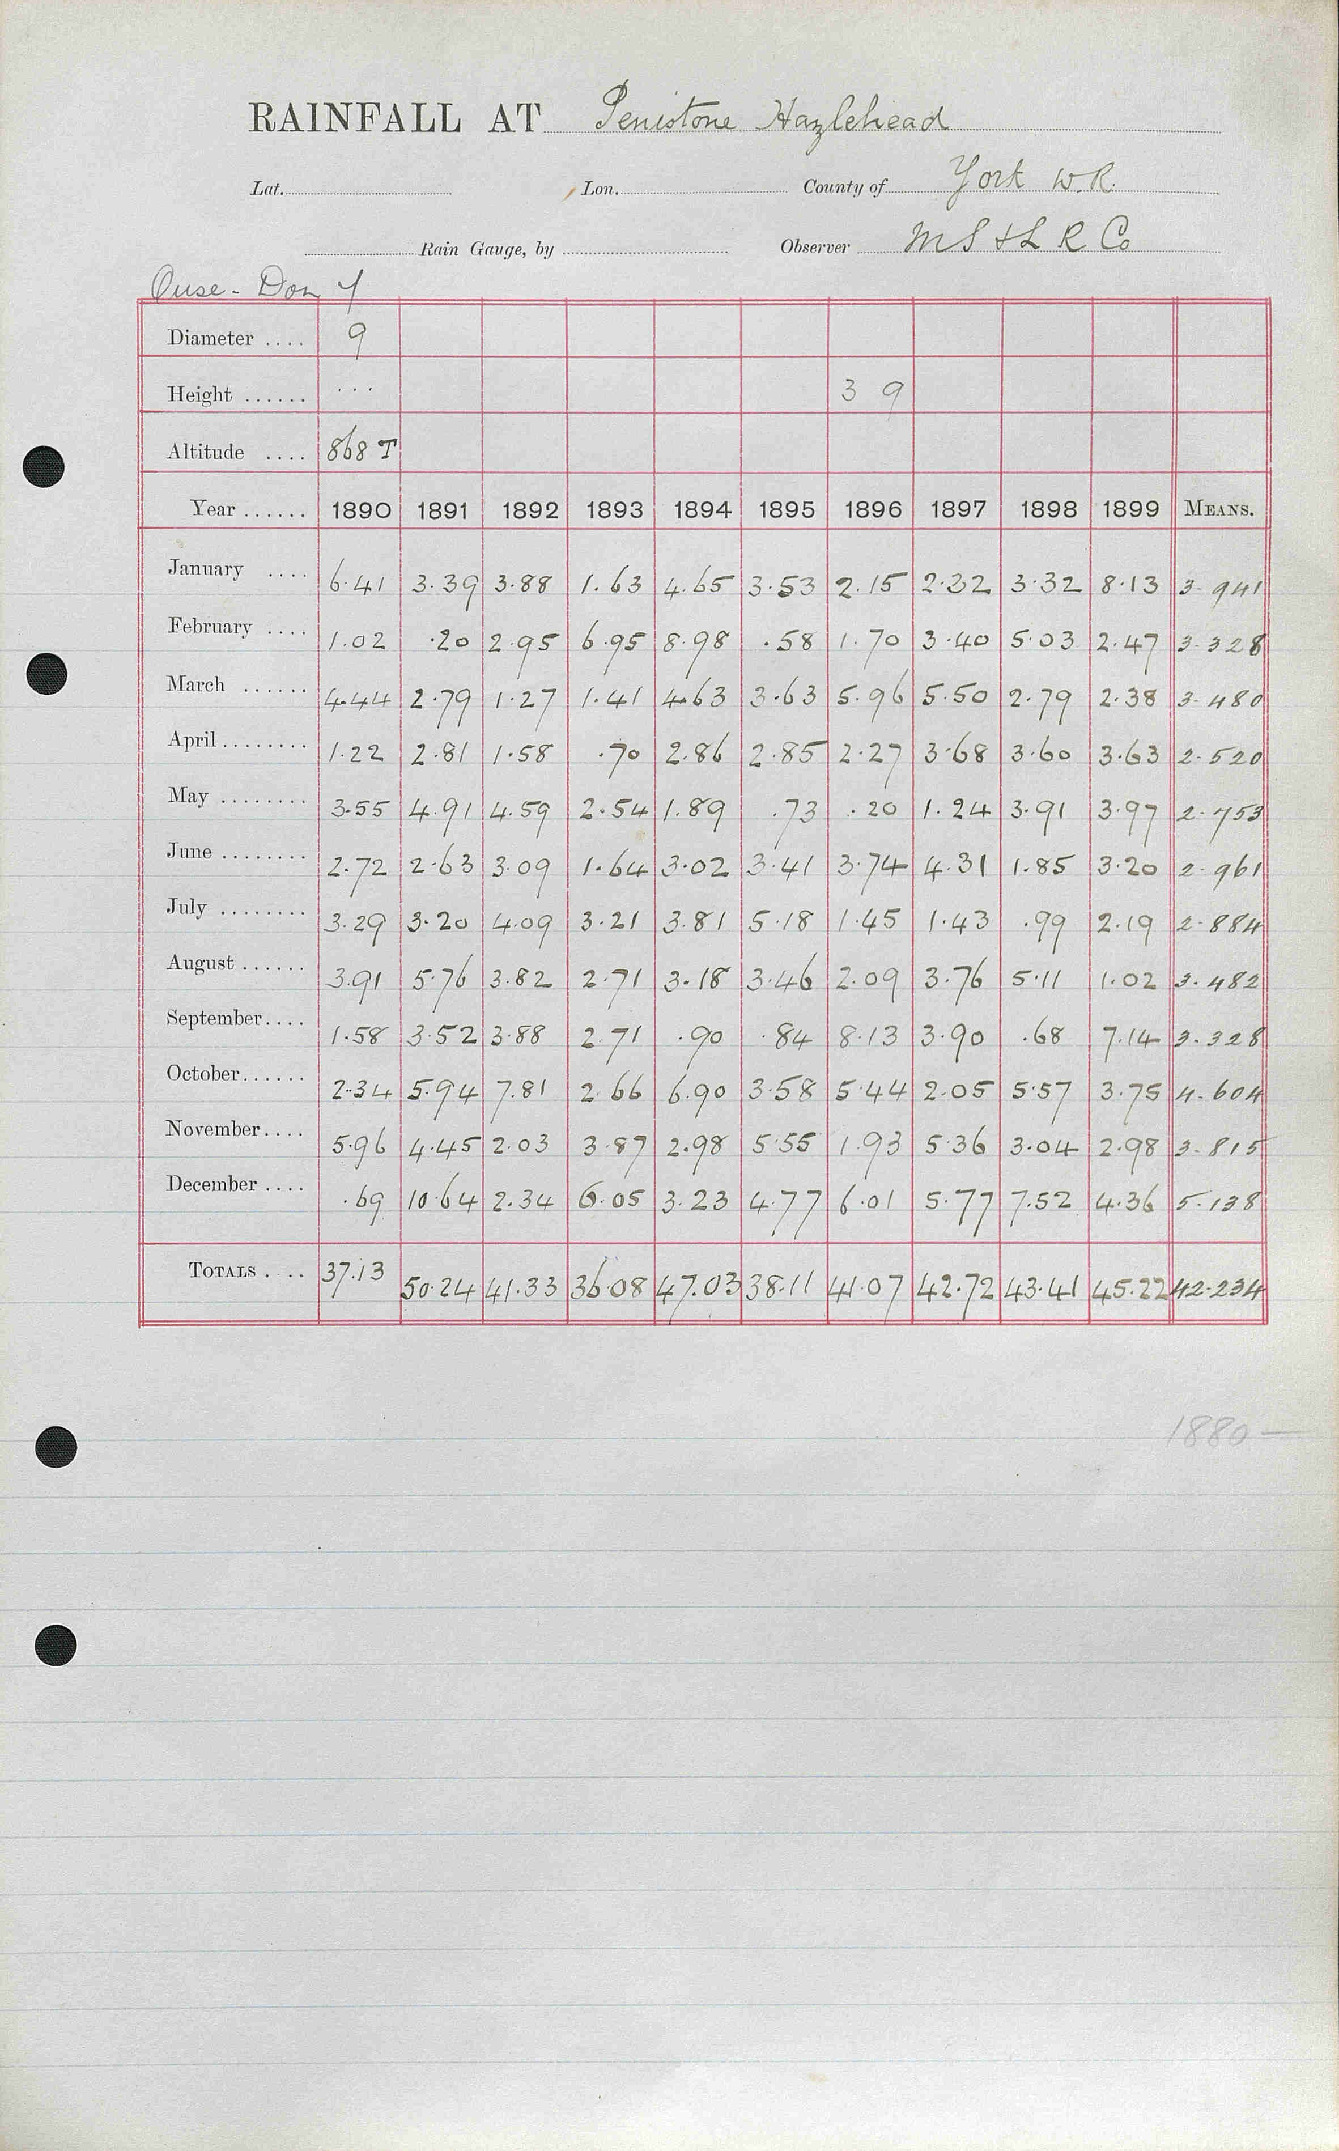 RAINFALL AT Penistone Hazlehead
Lat. Lon. County of York W.R.
Rain Gauge, by Observer M S & L R Co
Ouse - Don Y
Diameter .... 9
Height ...... ... 3 9
Altitude .... 868 T
Year ...... 1890 1891 1892 1893 1894 1895 1896 1897 1898 1899 MEANS.
January .... 6.41 3.39 3.88 1.63 4.65 3.53 2.15 2.32 3.32 8.13 3.941
February .... 1.02 .20 2.95 6.95 8.98 .58 1.70 3.40 5.03 2.47 3.328
March ...... 4.44 2.79 1.27 1.41 4.63 3.63 5.96 5.50 2.79 2.38 3.480
April ........ 1.22 2.81 1.58 .70 2.86 2.85 2.27 3.68 3.60 3.63 2.520
May ........ 3.55 4.91 4.59 2.54 1.89 .73 .20 1.24 3.91 3.97 2.753
June ........ 2.72 2.63 3.09 1.64 3.02 3.41 3.74 4.31 1.85 3.20 2.961
July ........ 3.29 3.20 4.09 3.21 3.81 5.18 1.45 1.43 .99 2.19 2.884
August ...... 3.91 5.76 3.82 2.71 3.18 3.46 2.09 3.76 5.11 1.02 3.482
September .... 1.58 3.52 3.88 2.71 .90 .84 8.13 3.90 .68 7.14 3.328
October ...... 2.34 5.94 7.81 2.66 6.90 3.58 5.44 2.05 5.57 3.75 4.604
November .... 5.96 4.45 2.03 3.87 2.98 5.55 1.93 5.36 3.04 2.98 3.815
December .... .69 10.64 2.34 6.05 3.23 4.77 6.01 5.77 7.52 4.36 5.138
TOTALS .... 37.13 50.24 41.33 36.08 47.03 38.11 41.07 42.72 43.41 45.22 42.234
1880 —